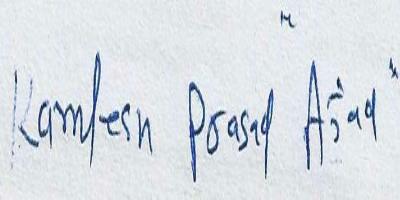 Kamlesh Prasad "Azad"